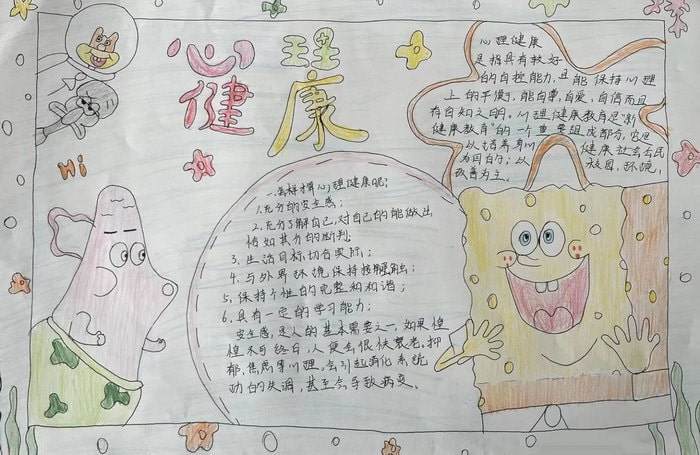 心理
健康
Hi
心理健康
是指具有较好
的自控能力,且能保持心理
上的平衡,能自尊,自爱,自信而且
有自知之明。心理健康教育是"新
健康教育"的一个重要组成部分,它是
以培养身心健康社会公民
为目的;以校园,环境,
教育为主。
一.怎样才算心理健康呢;
1.充分的安全感;
2.充分了解自己,对自己的能做出
恰如其分的断判,
3.生活目标,切合实际,;
4.与外界环境保持接触;
5.保持个性的完整和和谐;
6.具有一定的学习能力;
安全感,是人的基本需要之一,如果惶
惶不可终日,人便会很快衰老。抑
郁,焦虑等心理,会引起消化系统
功的失调,甚至会导致病变。